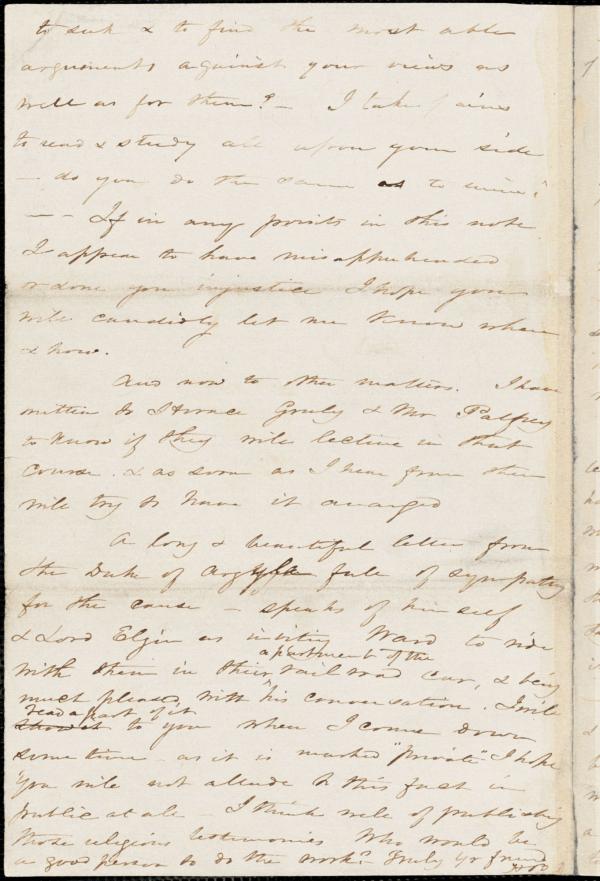 to seek & to find the most able
arguments against your views as
well as for them? – I take pains
to read & study all upon your side
– do you do the same as to mine?
– – If in any points in this note
I appear to have misapprehended
or done you injustice I hope you
will candidly let me know where
& how.
And now to other matters. I have
written to Horace Greely & Mr Palfrey
to know if they will lecture in that
course. & as soon as I hear from them
will try to have it arranged
A long & beautiful letter from
the Duke of Argyle full of sympathy
for the cause – speaks of himself
& Lord Elgin as inviting Ward to ride
apartment of the
with them in their railroad car, & being
much pleased with his conversation. I will
read a part of it
show it to you when I come down
some time – as it is marked "private" I hope
you will not allude to this fact in
public at all – I think well of publishing
those religious testimonies Who would be
a good person to do the work? – Truly yr friend